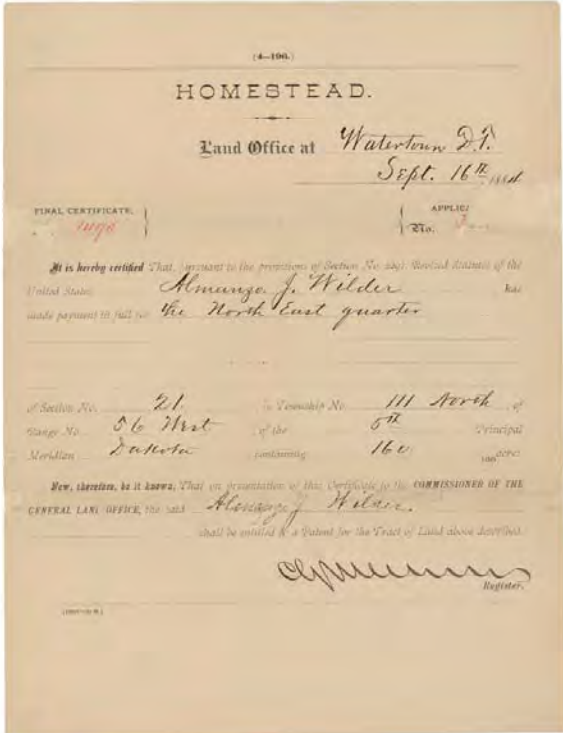 (4—196.)
HOMESTEAD.
Land Office at Watertown D.T.
Sept. 16th, 1884.
FINAL CERTIFICATE,
APPLIC
No.
It is hereby certified That, pursuant to the provisions of Section No. 2291, Revised Statutes of the
United States, Almanzo J. Wilder has
made payment in full for the North East quarter
of Section No. 21, in Township No. 111 North of
Range No. 56 West, of the 5th Principal
Meridian Dakota containing 160 acres
Now, therefore, be it known, That on presentation of this Certificate to the COMMISSIONER OF THE
GENERAL LAND OFFICE, the said Almanzo J Wilder.
shall be entitled to a Patent for the Tract of Land above described.
Register.